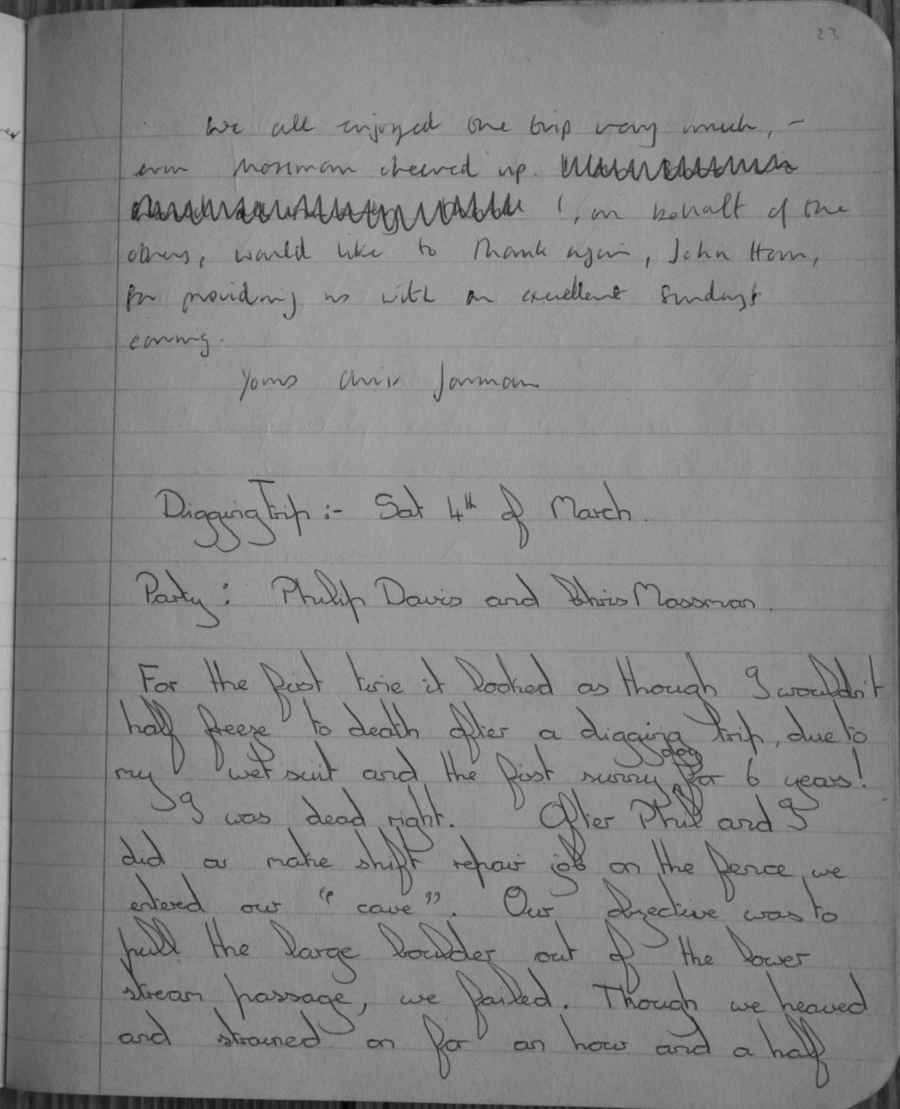 23
We all enjoyed the trip very much, -
even Mossman cheered up.
I, on behalf of the
others, would like to thank again, John Ham,
for providing us with an excellent Sunday's
caving.
Yours Chris Jarman
Digging Trip :- Sat 4th of March.
Party: Philip Davis and Chris Mossman.
For the first time it looked as though I wouldn't
half freeze to death after a digging trip, due to
day
my wet suit and the first sunny for 6 years!
I was dead right. After Phil and I
did a make shift repair job on the fence we
entered our "cave". Our objective was to
pull the large boulder out of the lower
stream passage, we failed. Though we heaved
and strained on for an hour and a half